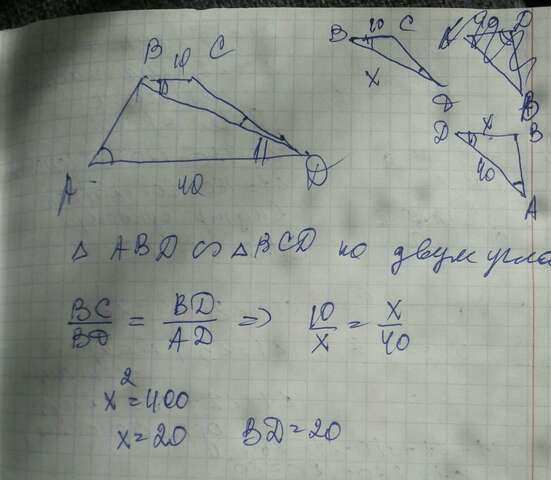 B 10 C
A 40 D
B 10 C
X
D
D X B
40
A
△ ABD ∾ △BCD по двум угла
BC/BD = BD/AD => 10/x = x/40
x²=400
x=20 BD=20